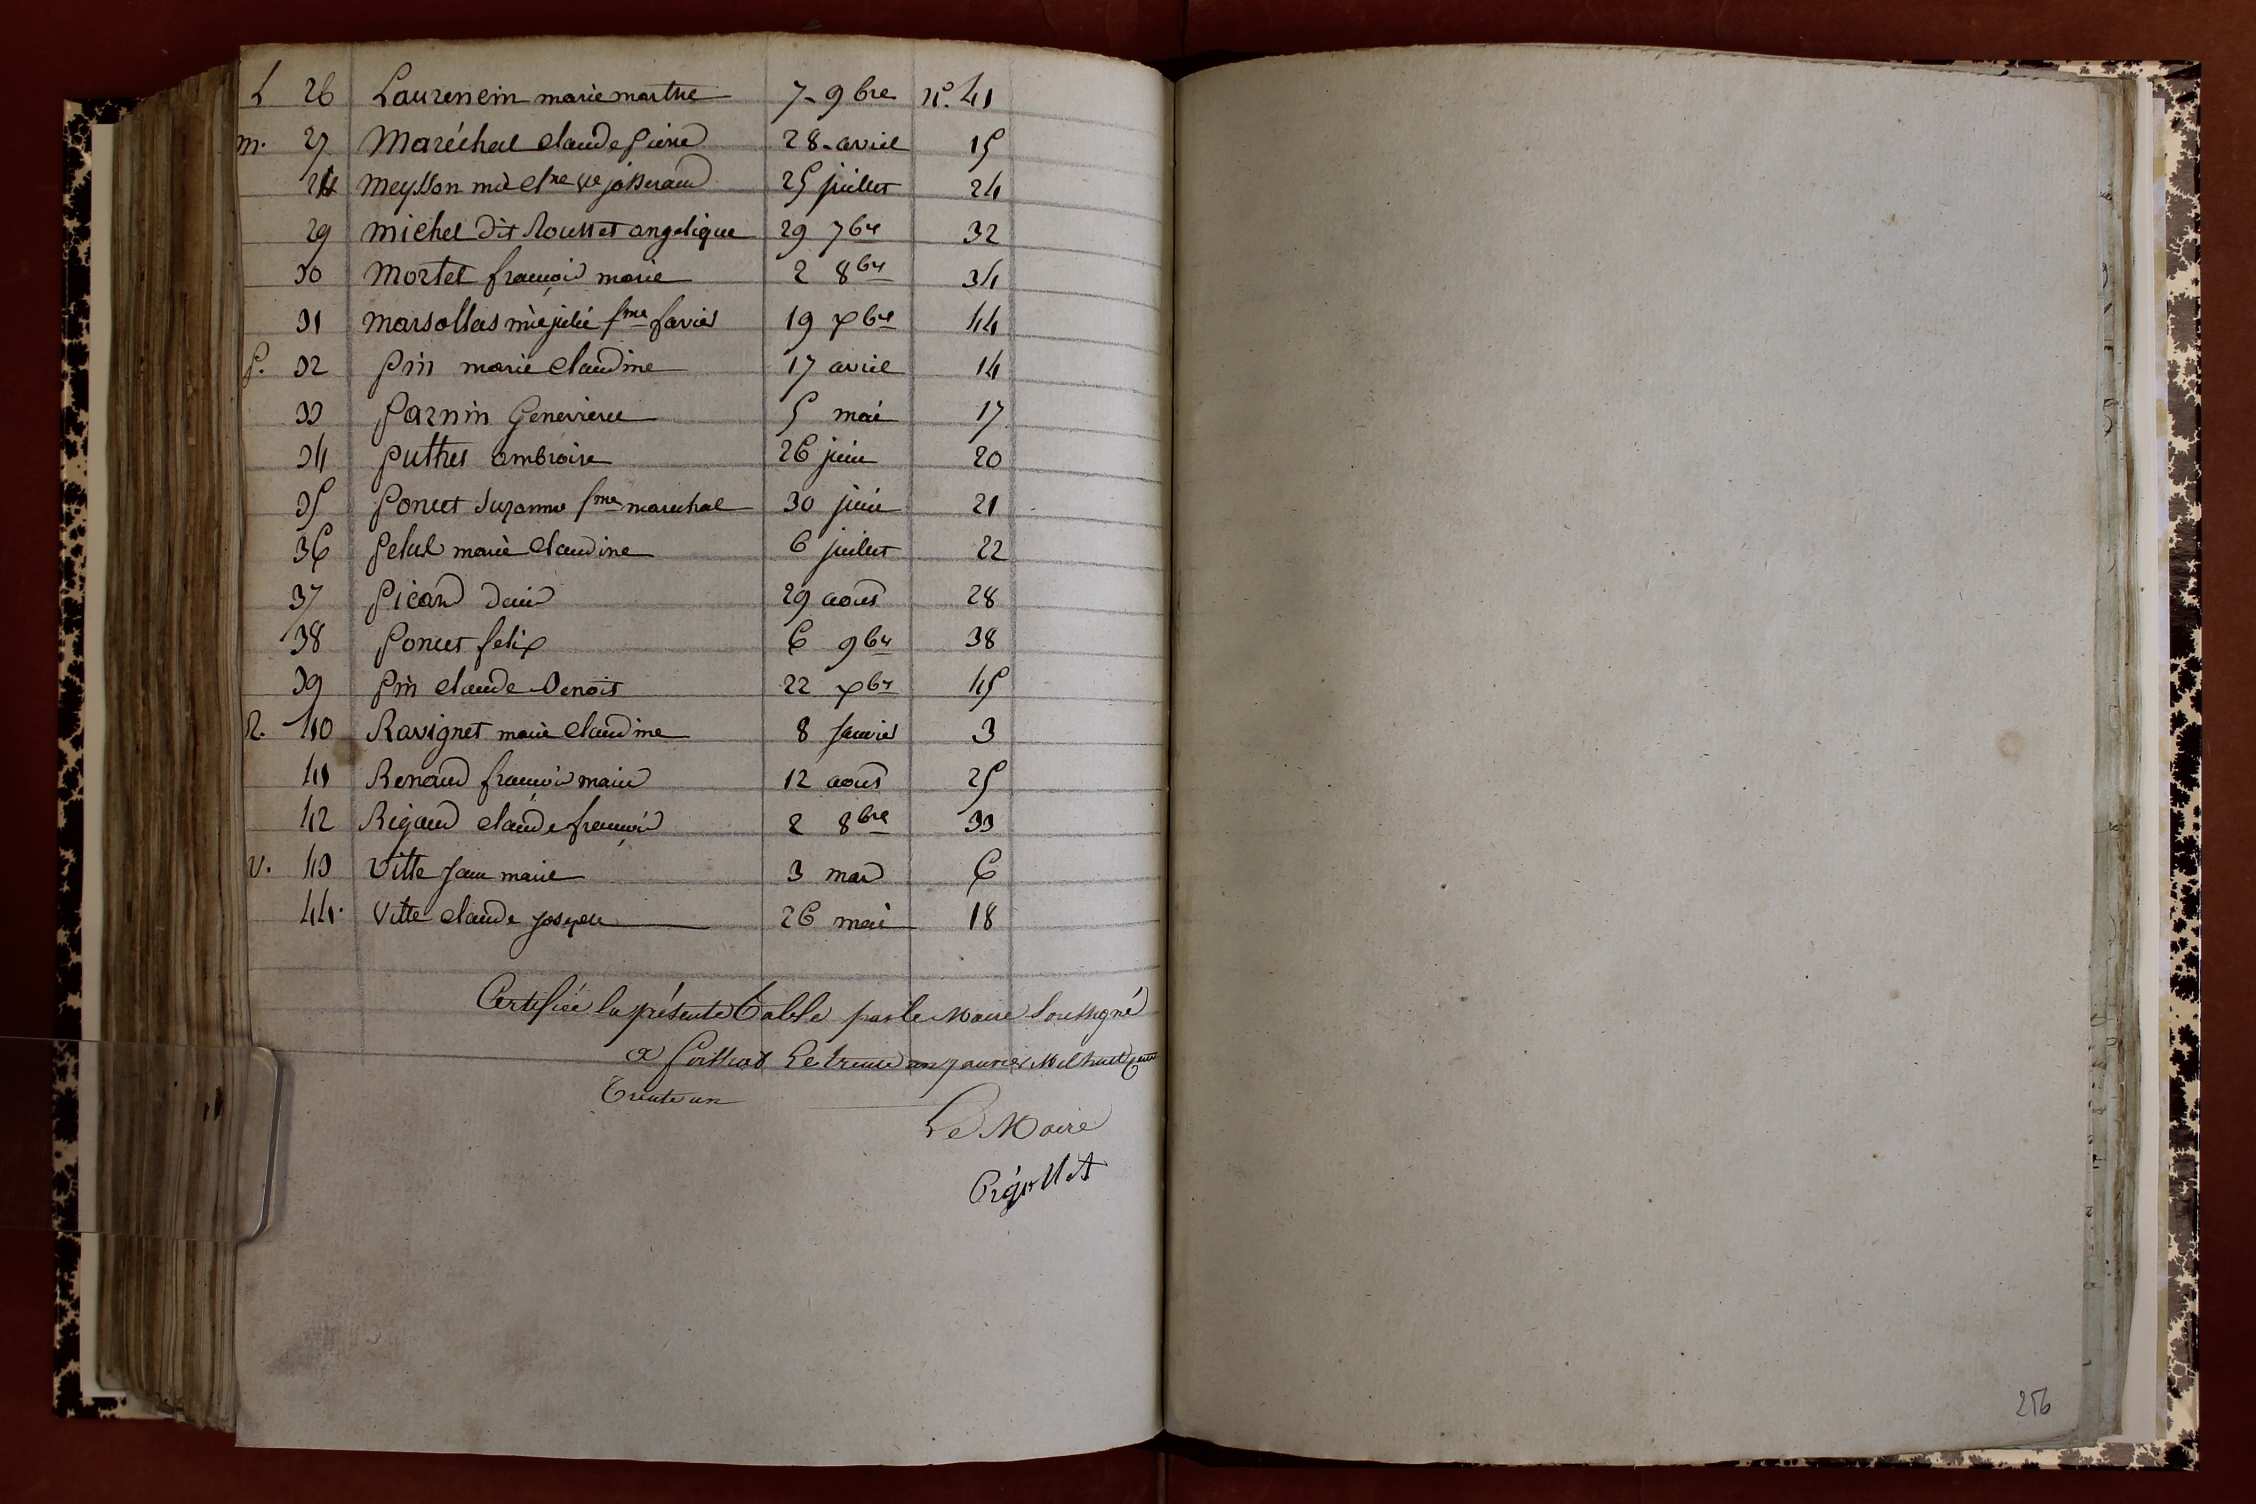 L 26 Laurencin marie marthe 7 - 9bre n°. 41
m. 27 Maréchal claude pierre 28 - avril 15
28 meysson mie clne ve josserand 25 juillet 24
29 michel dit Rousset angelique 29 7bre 32
30 mortel françois marie 2 8bre 34
31 marsollas mie julie fme favier 19 xbre 44
P. 32 Pin marie claudine 17 avril 14
33 Parnin Genevieve 5 mai 17
34 Puthet ambroise 26 juin 20
35 Poncet Suzanne fme marechal 30 juin 21
36 marie claudine 6 juillet 22
37 Picard denis 29 aout 28
38 Poncet felix 6 9bre 38
39 Pin claude Benoit 22 xbre 45
R. 40 Ravignet marie claudine 8 janvier 3
41 Renaud françois marie 12 aout 25
42 Rigaud claude françois 2 8bre 33
V. 43 Vitte jean marie 3 mars 6
44. Vitte claude joseph 26 mai 18
Certifiée la présente Table par le Maire Soussigné
a le trente un janvier Mil huit Cent
Trente un
Le Maire
256